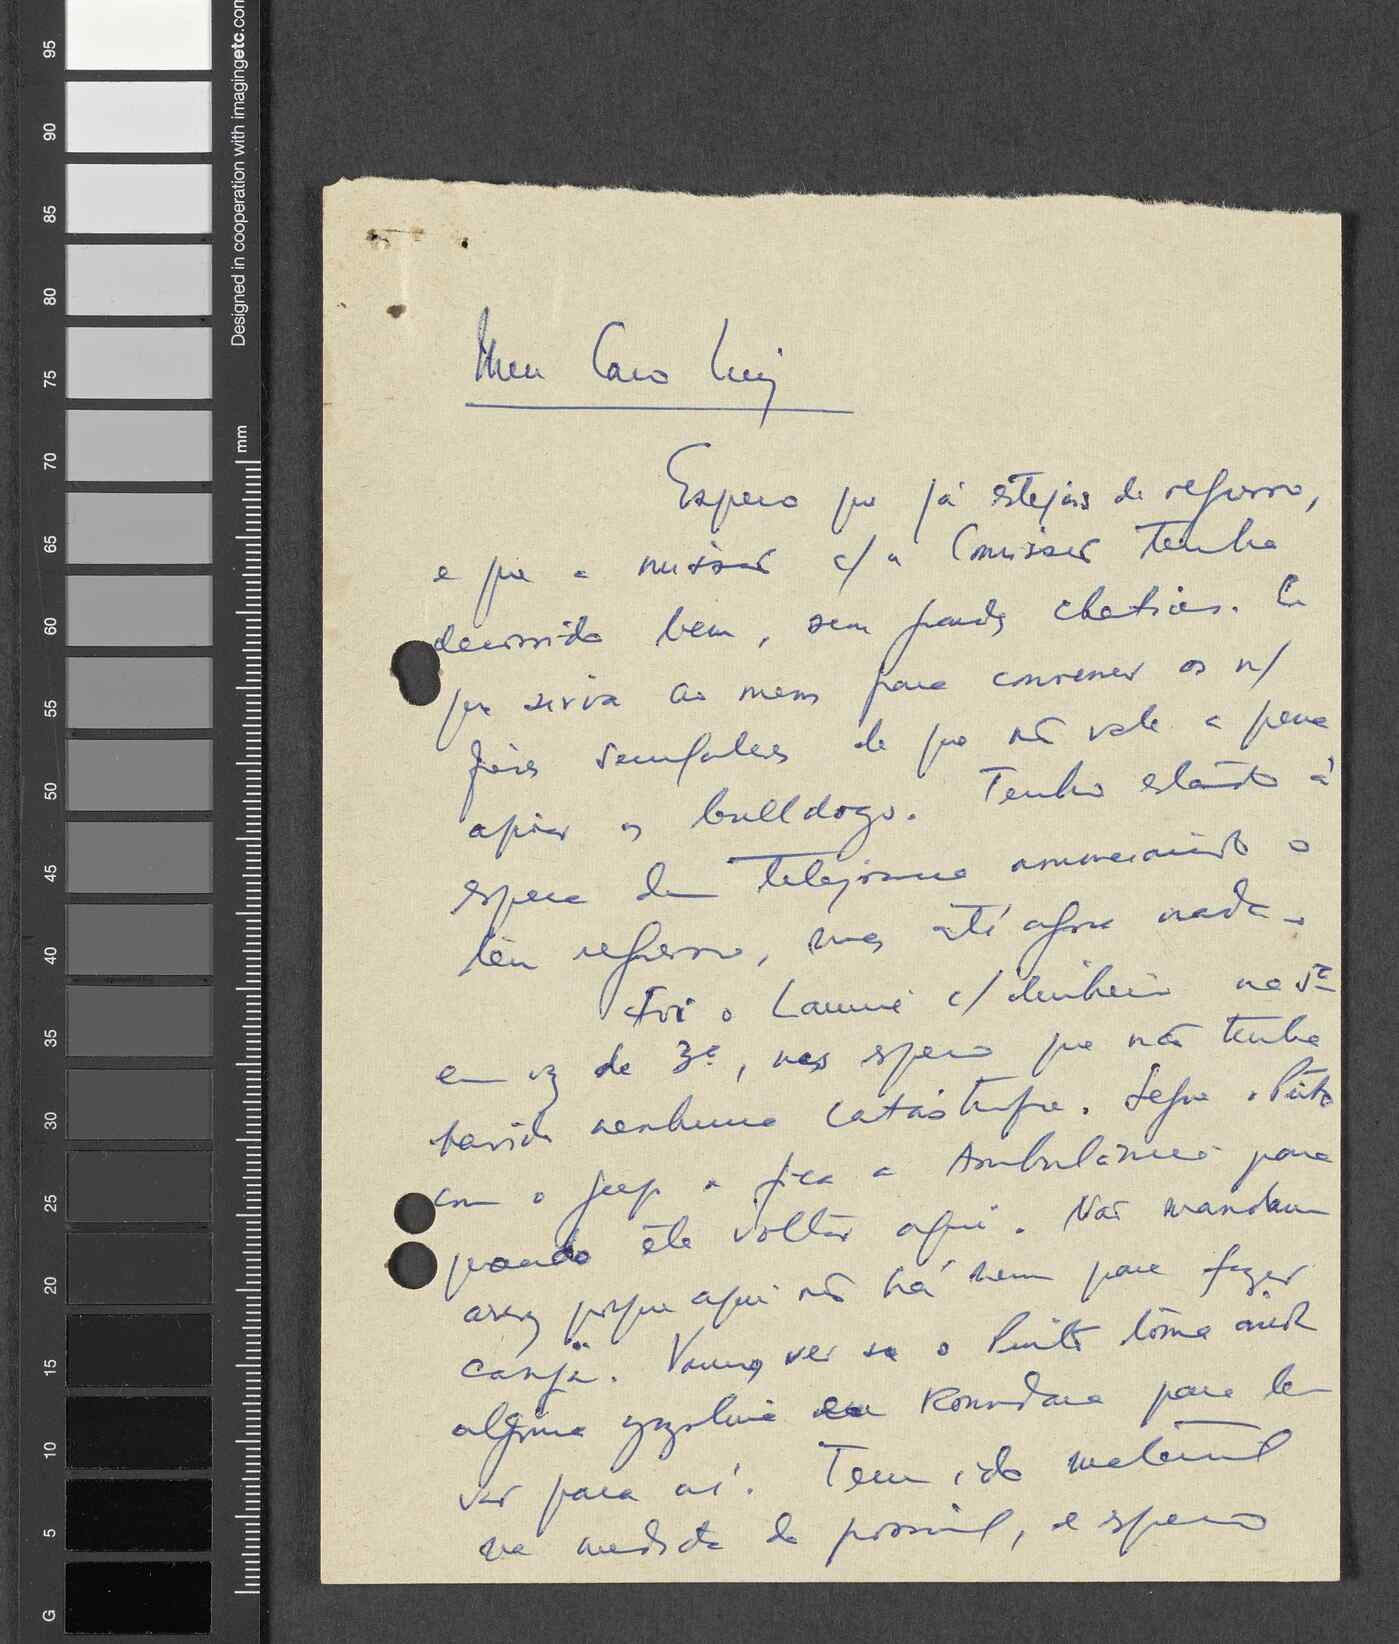 95
90
85
80
75
70
65
60
55
50
45
40
35
30
25
20
15
10
5
G
Designed in cooperation with imagingetc.com
mm
Meu Caro Luiz
Espero que já estejas de regresso,
e que a missão c/ a Comissão tenha
decorrido bem, sem grandes chatices. E
que sirva ao menos para convencer os n/
de que não vale a pena
apoiar os bulldogs. Tenho estado à
espera dum telegrama anunciando o
teu regresso, mas até agora nada.
Foi o c/ dinheiro na 5ª
em vez de 3ª, mas espero que não tenha
havido nenhuma catástrofe. Segue o Pinto
com o jeep e fica a Ambulância para
quando êle voltar aqui. Não mandam
arroz porque aqui não há nem para fazer
canja. Vamos ver se o Pinto toma ainda
alguma gazolina em Koundara para le
var para aí. Tem ido material
na medida do possível, e espero